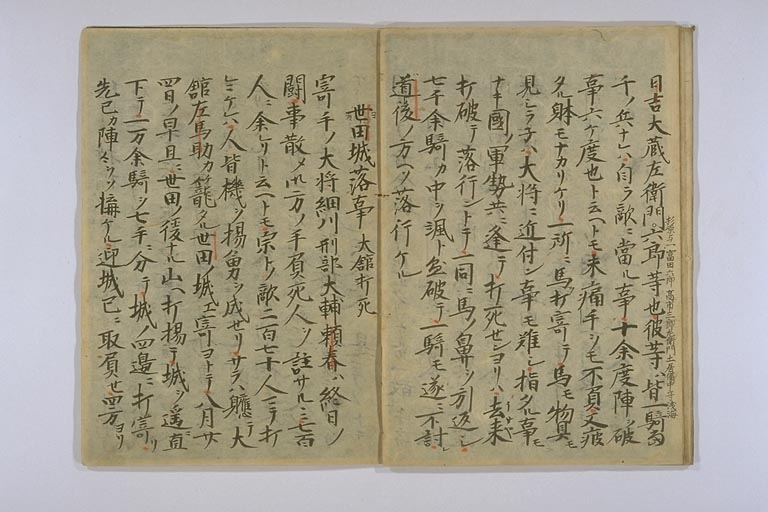 日吉大蔵左衛門六郎等也彼等ハ皆一騎當
千ノ兵ナレハ自ラ敵ニ當ル事十余度陣ヲ破
事六ケ度也ト云ヘトモ未痛手ヲモ不負又疲
タル躰モナカリケリ一所ニ馬打寄テ馬モ物具モ
見シラ子ハ大将ニ近付ン事モ難シ指タル事モ
ナキ國ノ軍勢共ニ逢テ打死センヨリハ去来
打破テ落行ントテ一同ニ馬ノ鼻ヲ引返シ
七千余騎カ中ヲ颯ト蒐破テ一騎モ遂ニ不討
道後ノ方ヘソ落行ケル
世田城落事 大舘打死
寄手ノ大将細川刑部大輔頼春ハ終日ノ
闘事散メ九万ノ手負死人ヲ註サルニ七百
人ニ余レリト云ヘトモ宗トノ敵二百七十人ミテ打
ケレハ人皆機ヲ揚勇ヲ成セリサラハ軈テ大
舘左馬助カ籠タル世田ノ城エ寄ヨトテ八月廿
四日ノ早旦ニ世田ノ後ナル山ヘ打揚テ城ヲ遥直
下テ一万余騎ヲ七手ニ分テ城ノ四邊ニ打寄リ
先己カ陣々ヲソ構ケル迎城已ニ取負セ四方ヨリ